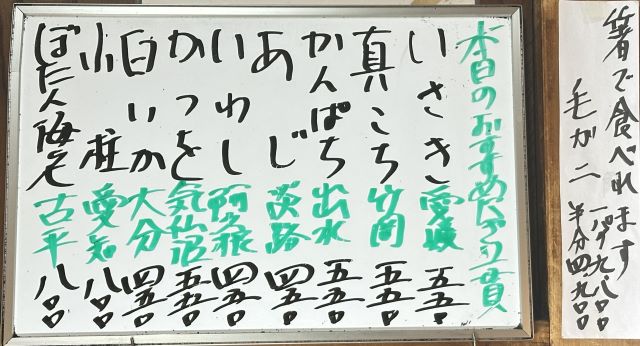 箸で食べれます
毛がニ
一パイ九八〇〇
半分四九〇〇
本日のおすすめにぎり一貫
いさき 愛媛 五五〇
真こち 竹岡 五五〇
かんぱち 出水 五五〇
あじ 淡路 四五〇
いわし 阿久根 四五〇
かつを 気仙沼 五五〇
白いか 大分 四五〇
小柱 愛知 八〇〇
ぼたん海老 古平 八〇〇